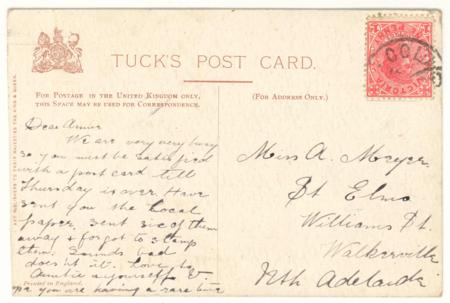 TUCK'S POST CARD.
FOR POSTAGE IN THE UNITED KINGDOM ONLY,
THIS SPACE MAY BE USED FOR CORRESPONDENCE.
(FOR ADDRESS ONLY.)
Dear Annie
We are very very busy
so you must be satisfied
with a post card till
Thursday is over. Have
sent you the Local
paper. sent six of them
away & forgot to stamp
them. Sounds bad
doesn't it. love to
Auntie & yourself
you are having a rare time
Miss A. Meyer
St Elmo
Williams St.
Walkerville
Nth Adelaide
Printed in England.